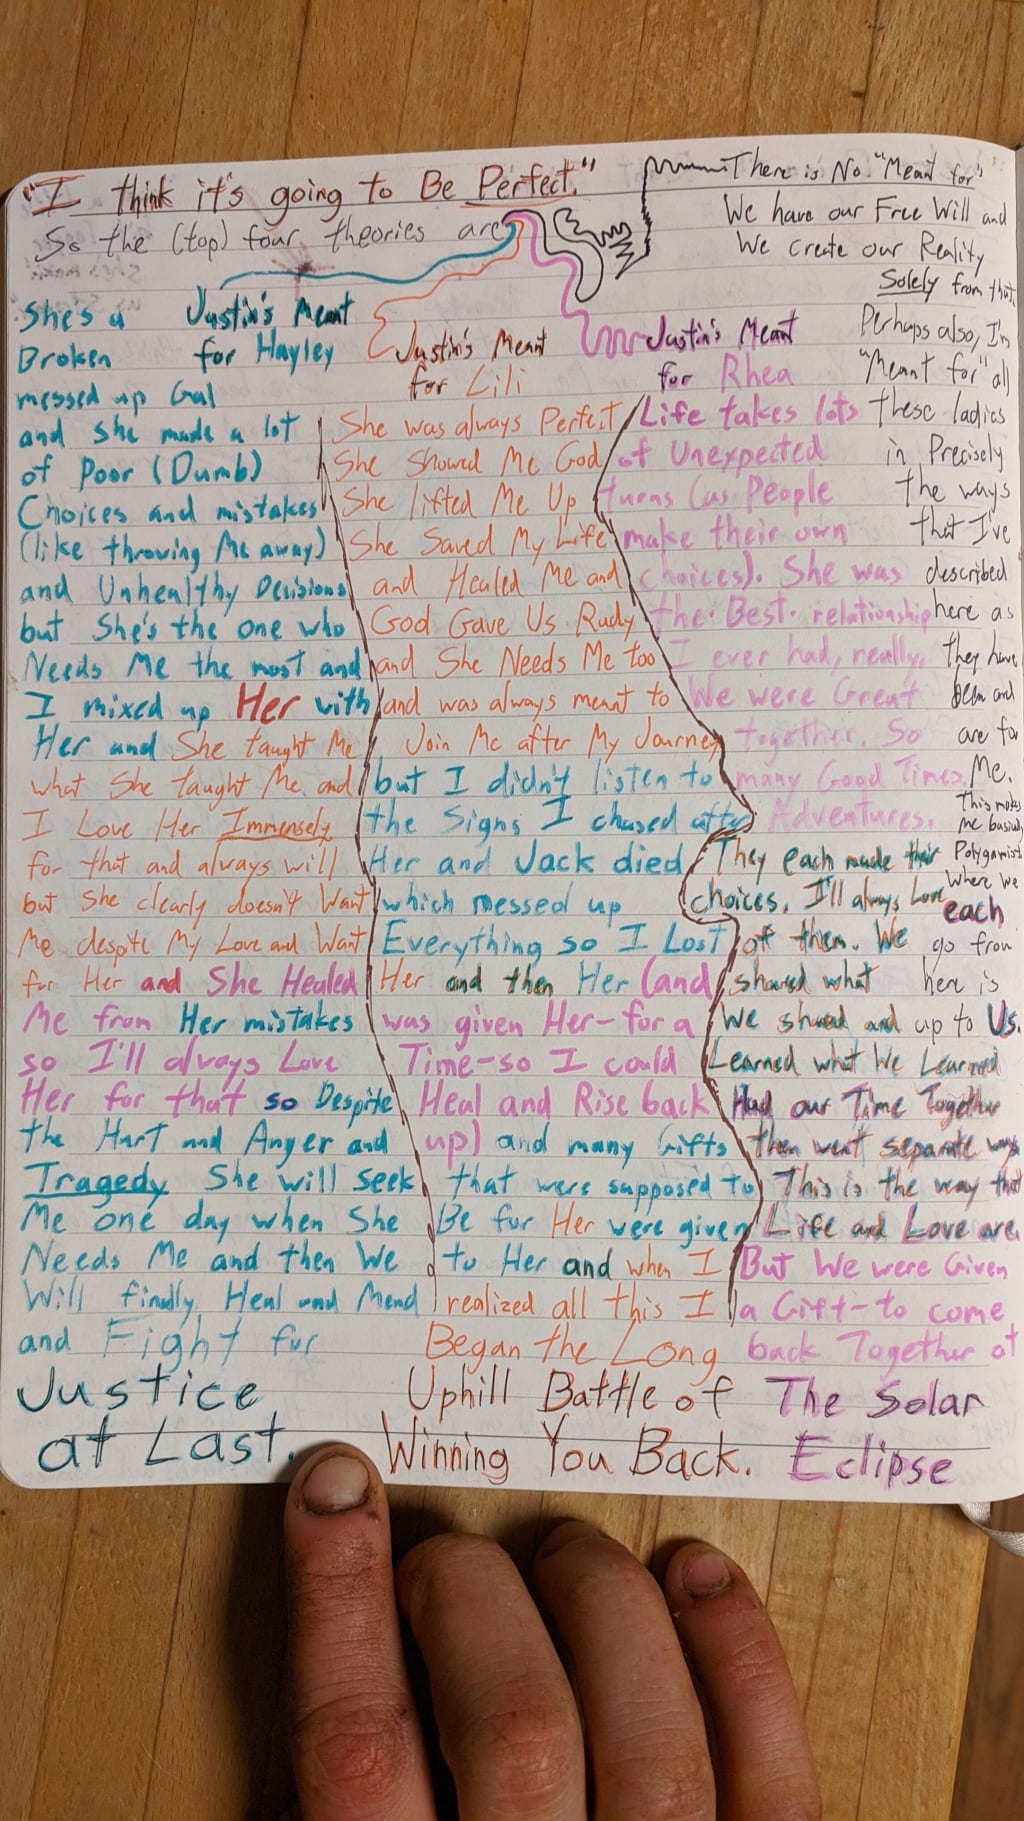 "I think it's going to Be Perfect."
So the (top) four theories are
She's a
Broken
messed up Gal
Justin's Meant
for Hayley
and she made a lot
of Poor (Dumb)
Choices and mistakes
(like throwing Me away)
and Unhealthy Decisions
but She's the one who
Needs Me the most and
I mixed up Her with
Her and She taught Me
what She taught Me and
I Love Her Immensely
for that and always will
but She clearly doesn't Want
Me despite My Love and Want
for Her and She Healed
Me from Her mistakes
so I'll always Love
Her for that so Despite
the Hurt and Anger and
Tragedy She will seek
Me one day when She
Needs Me and then We
Will finally Heal and Mend
and Fight for
Justice
at Last.
Justin's Meant
for Lili
She was always Perfect
She Showed Me God
She lifted Me Up
She Saved My Life
and Healed Me and
God Gave Us Rudy
and She Needs Me too
and was always meant to
Join Me after My Journey
but I didn't listen to
the Signs I chased after
Her and Jack died
which messed up
Everything so I Lost
Her and then Her (and
was given Her-for a
Time-so I could
Heal and Rise back
up) and many Gifts
that were supposed to
Be for Her were given
to Her and when I
realized all this I
Began the Long
Uphill Battle of
Winning You Back.
Justin's Meant
for Rhea
Life takes lots
of Unexpected
turns (as People
make their own
choices). She was
the Best relationship
I ever had, really,
We were Great
together. So
many Good Times.
Adventures.
They each made their
choices. I'll always Love
of them. We
shared what
We shared and
Learned what We Learned
Had our Time Together
then went separate ways
This is the way that
Life and Love are.
But We were Given
a Gift-to come
back Together at
The Solar
Eclipse
There is No "Meant for"
We have our Free Will and
We create our Reality
Solely from that.
Perhaps also, I'm
"Meant for" all
these ladies
in Precisely
the ways
that I've
described
here as
they have
been and
are for
Me.
This makes
me basically
Polygamist
Where we
each
go from
here is
up to Us.